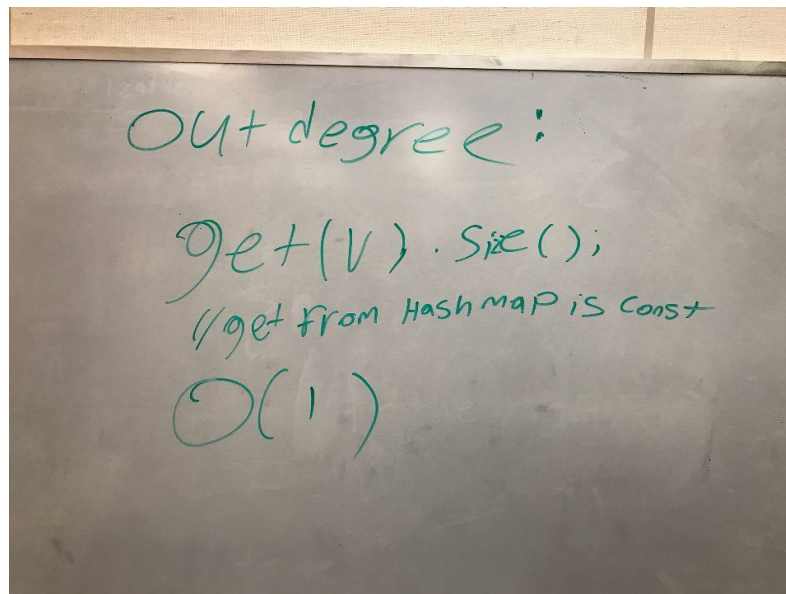 Out degree:
get(v).size();
//get from Hashmap is const
O(1)